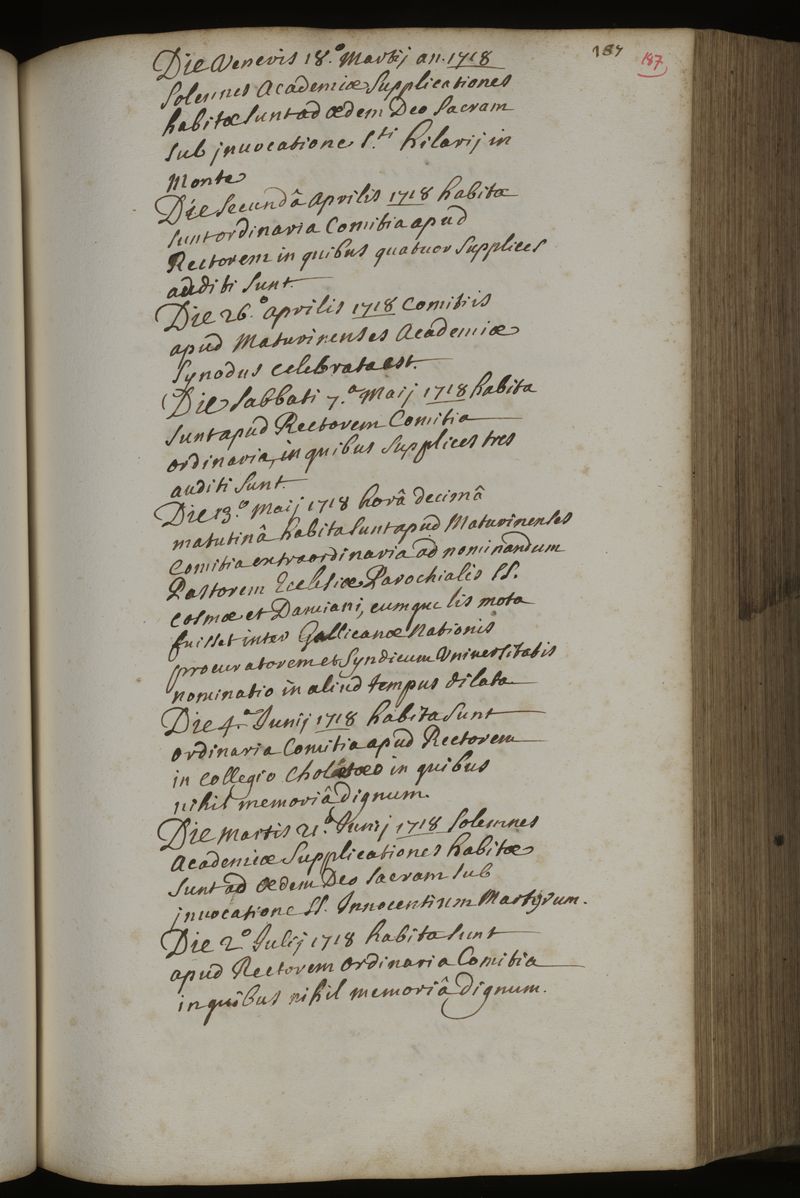 187 187
Die Veneris 18.o Martij an. 1718
Solennes Academiæ Supplicationes
habitæ Sunt ad ædem Deo Sacram
Sub jnuocatione S.ti hilarij in
Monte
Die Secundâ Aprilis 1718 habita
Sunt ordinaria Comitia apud
Rectorem in quibus quatuor Supplices
auditi Sunt.
Die 26.o aprilis 1718 Comitiis
apud Maturinenses Academiæ
Synodus Celebrata est.
Die Sabbati 7.a Maij 1718 habita
Sunt apud Rectorem Comitia
ordinaria, in quibus Supplices tres
auditi Sunt.
Die 13.o Maij 1718 horâ decimâ
matutinâ habita Sunt apud Maturinenses
Comitia extraordinaria ad nominandum
Pastorem Ecclesiæ Parochialis SS.
Cosmæ et Damiani, cumque lis mota
fuisset inter Gallicanæ Nationis
procuratorem et Syndicum Vniversitatis
nominatio in aliud tempus dilata
Die 4.a Junij 1718 habita Sunt
ordinaria Comitia apud Rectorem
in Collegio Choletæo in quibus
nihil memoriâ dignum.
Die Martis 21.a Junij 1718 Solemnes
Academiæ Supplicationes habitæ
Sunt ad ædem Deo Sacram Sub
jnuocatione SS. Innocentium Martyrum.
Die 2.o Julij 1718 habita Sunt
apud Rectorem ordinaria Comitia
in quibus nihil memoriâ dignum.